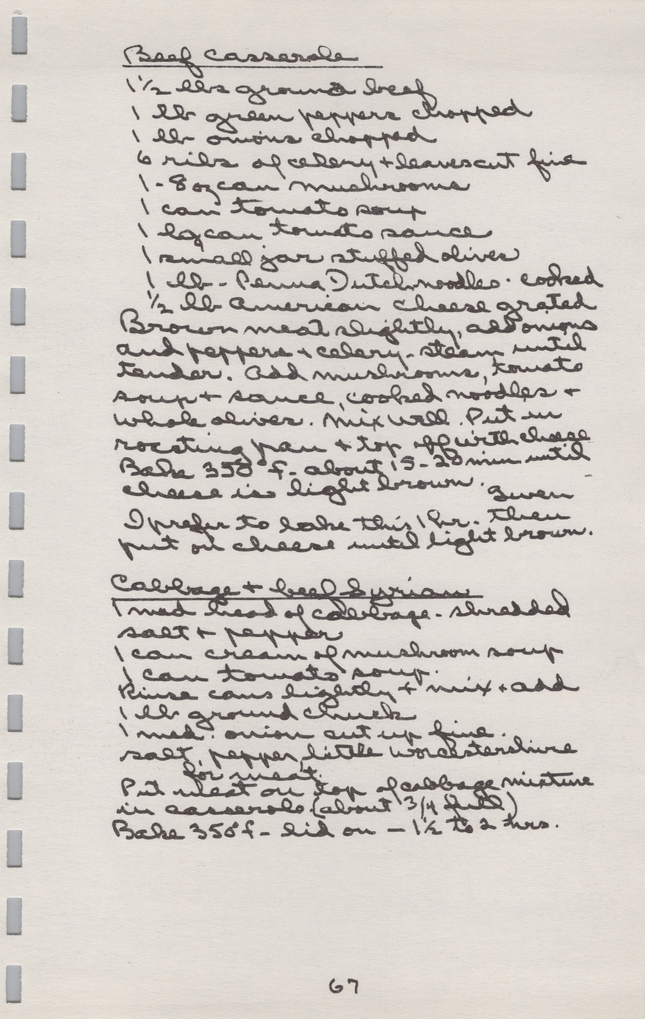 Beef Casserole
1 1/2 lbs ground beef
1 lb green peppers chopped
1 lb onions chopped
6 ribs of celery + leaves cut fine
1 - 8 oz can mushrooms
1 can tomato soup
1 lg can tomato sauce
1 small jar stuffed olives
1 lb - Penna Dutch noodles - cooked
1/2 lb American cheese grated
Brown meat slightly, add onions
and peppers + celery - steam until
tender. Add mushrooms, tomato
soup + sauce, cooked noodles +
whole olives. Mix well. Put in
roasting pan + top off with cheese
Bake 350° F - about 15-20 min until
cheese is light brown.
I prefer to bake this 1 hr. then
put on cheese until light brown.
Cabbage + beef Syrian
1 med head of cabbage - shredded
salt + pepper
1 can cream of mushroom soup
1 can tomato soup.
Rinse cans lightly + mix + add
1 lb ground chuck
1 med. onion cut up fine.
salt, pepper, little worcestershire
for meat.
Put meat on top of cabbage mixture
in casserole (about 3/4 full)
Bake 350° F - lid on - 1 1/2 to 2 hrs.
67